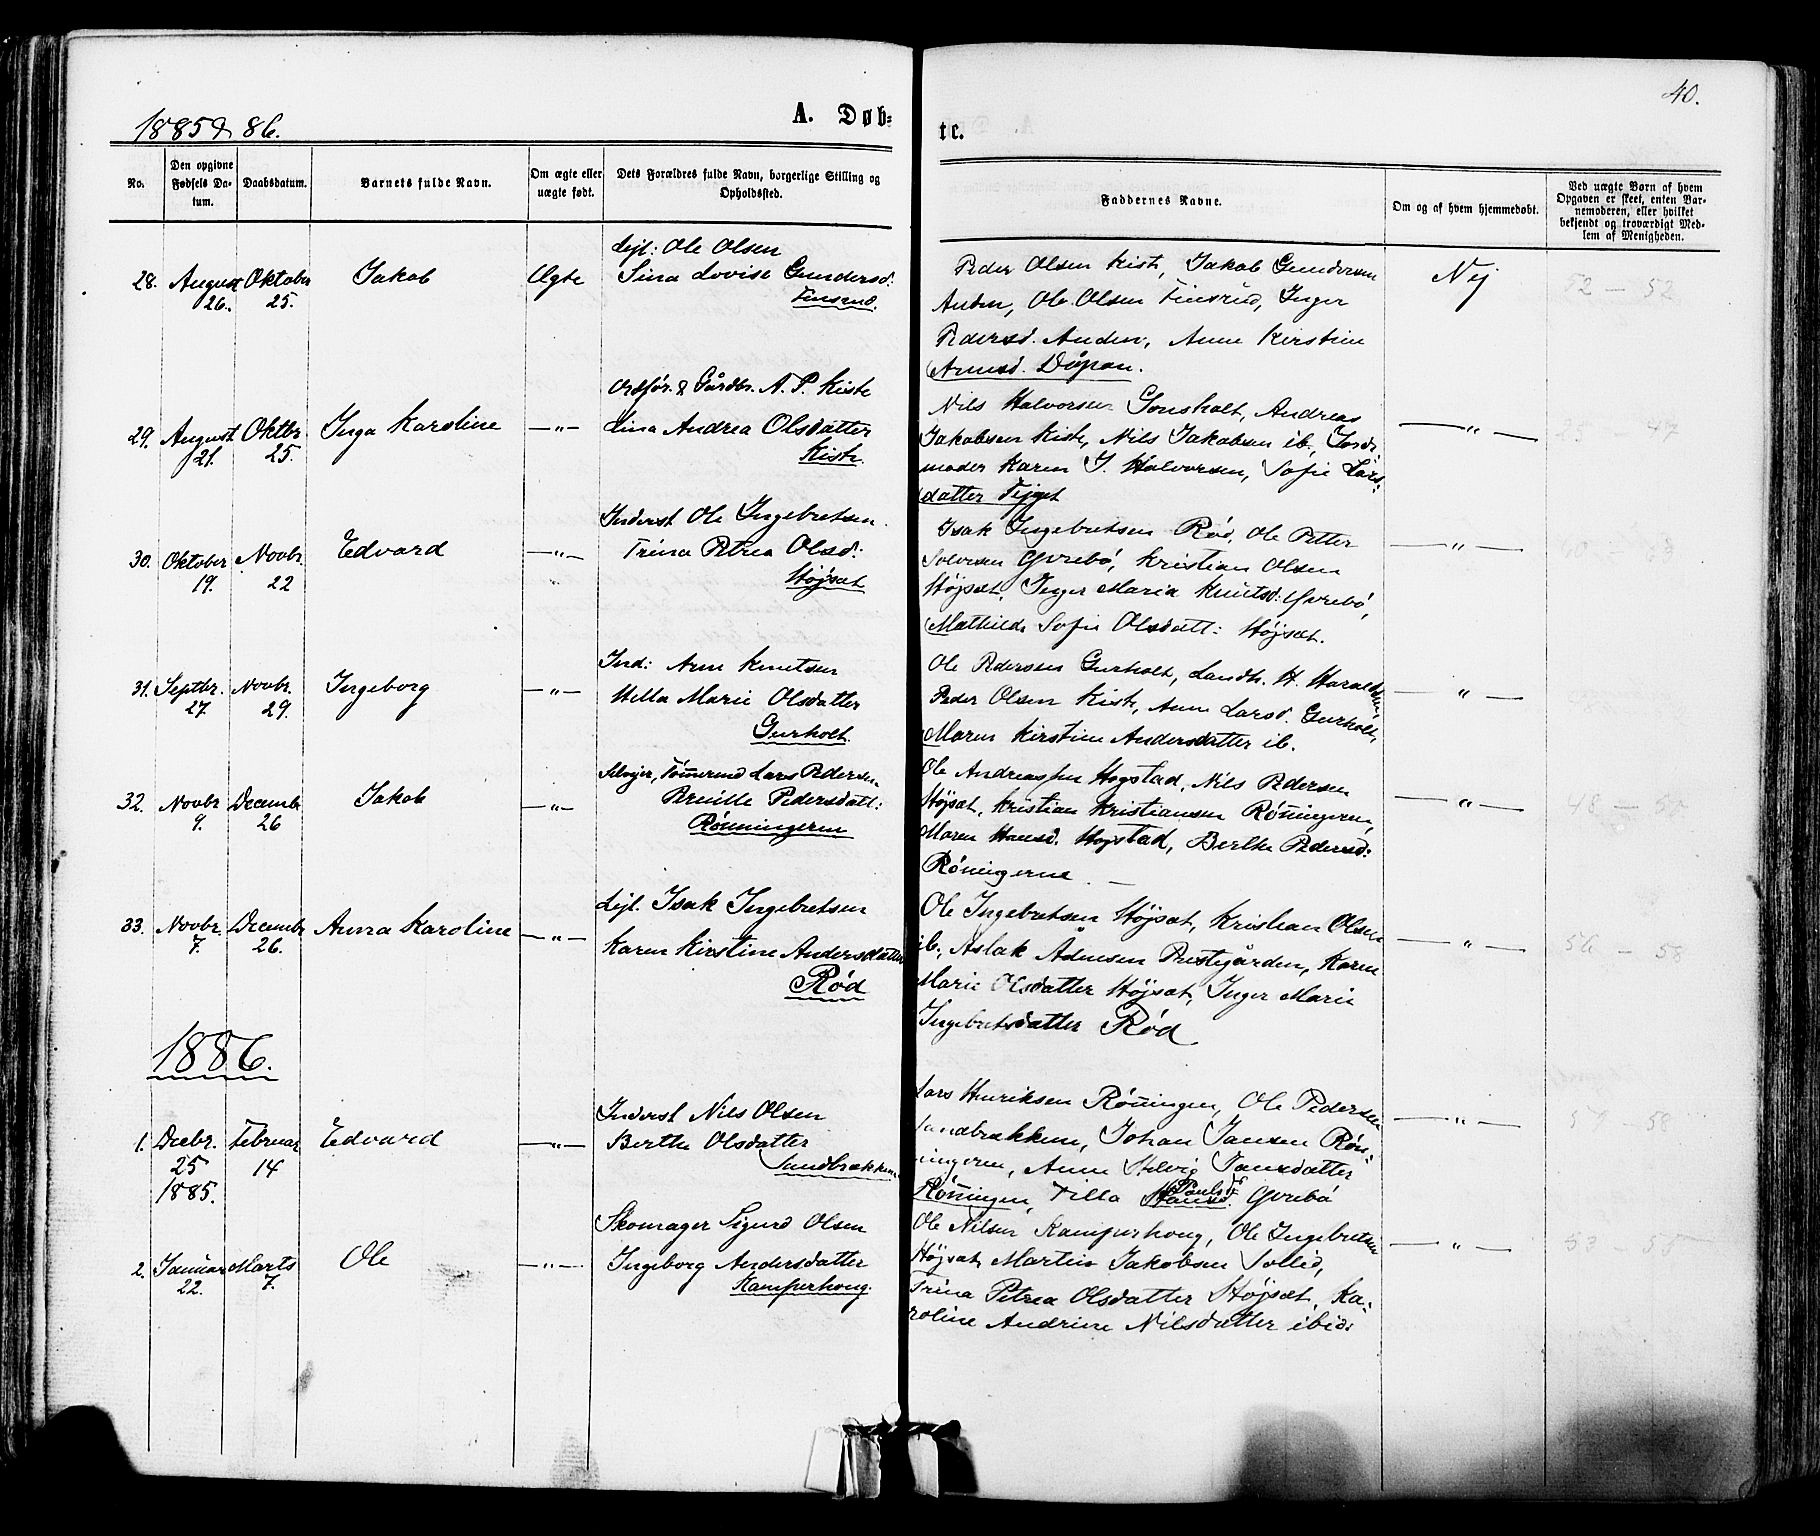 40.
1885 & 86.
A. Døb-
te.
No.
Den opgivne Fødsels Da-tum.
Daabsdatum.
Barnets fulde Navn.
Om ægte eller uægte født.
Dets Forældres fulde Navn, borgerlige Stilling og Opholdssted.
Faddernes Navne.
Om og af hvem hjemmedøbt.
Ved uægte Børn af hvem Opgaven er skeet, enten Bar-nemoderen, eller hvilket bekjendt og troværdigt Med-lem af Menigheden.
28.
August 26.
Oktober 25.
Jakob
Ægte
Lejl: Ole Olsen
Sina Lovise Gundersd:
Finsrud.
Peder Olsen Kiste, Jakob Gundersen
Anden, Ole Olsen Finsrud, Inger
Pedersd. Anden, Anne Kirstine
Arnesd. Döpan.
Nej
52 — 52
29.
August 21.
Oktbr. 25.
Inga Karoline
—"—
Ordfør. & Gårdbr. A. P. Kiste
Lina Andrea Olsdatter
Kiste.
Nils Halvorsen Gonsholt, Andreas
Jakobsen Kiste, Nils Jakobsen ib., Jord-
moder Karen J. Halvorsen, Sofie Lars-
datter
—"—
47
30.
Oktober 19.
Novbr. 22
Edvard
—"—
Inderst Ole Ingebretsen.
Trina Petrea Olsd:
Højsæt
Isak Ingebretsen Rød, Ole Petter
Solvesen Gvrebö, Kristian Olsen
Højsæt, Inger Maria Knutsd: Gvrebö,
Mathilde Sofie Olsdatt: Højsæt.
—"—
31.
Septbr. 27.
Novbr. 29.
Ingeborg
—"—
Ind: Arne Knutsen
Hella Marie Olsdatter
Gurholt.
Ole Pedersen Gurholt, Landh. H. Haraldsen,
Peder Olsen Kiste, Anne Larsd. Gurholt,
Maren Kirstine Andersdatter ib.
—"—
32.
Novbr. 9.
Decembr. 26
Jakob
—"—
Selvejer, Tömmermd Lars Pedersen
Pernille Pedersdatt:
Rönningerne
Ole Andreassen Hogstad, Nils Pedersen
Højsæt, Kristian Kristiansen Röningerne,
Maren Hansd. Hogstad, Berthe Pedersd:
Röningerne —
—"—
48 — 52
33.
Novbr. 7.
Decembr. 26.
Anna Karoline
—"—
Lejl. Isak Ingebretsen
Karen Kirstine Andersdatter
Rød
Ole Ingebretsen Højsæt, Kristian Olsen
ib., Aslak Adensen Prestegården, Karen
Marie Olsdatter Højsæt, Inger Marie
Ingebretsdatter Rød
—"—
56 — 58
1886.
1.
Decbr. 25 1885.
Februar 14
Edvard
—"—
Inderst Nils Olsen
Berthe Olsdatter
Sundbrækken
Lars Henriksen Röningen, Ole Pedersen
Sundbrækken, Johan Jansen Rön-
ningerne, Anne Helvig Jansdatter
Röningen, Tilla Paulsd. Gvrebö
—"—
57 58
2.
Januar 22.
Marts 7.
Ole
—"—
Skomager Sigurd Olsen
Ingeborg Andersdatter
Kamperhoug.
Ole Nilsen Kamperhoug, Ole Ingebretsen
Højsæt, Martin Jakobsen Sollid,
Trina Petrea Olsdatter Højsæt, Ka-
roline Andrine Nilsdatter ibid:
—"—
53 55